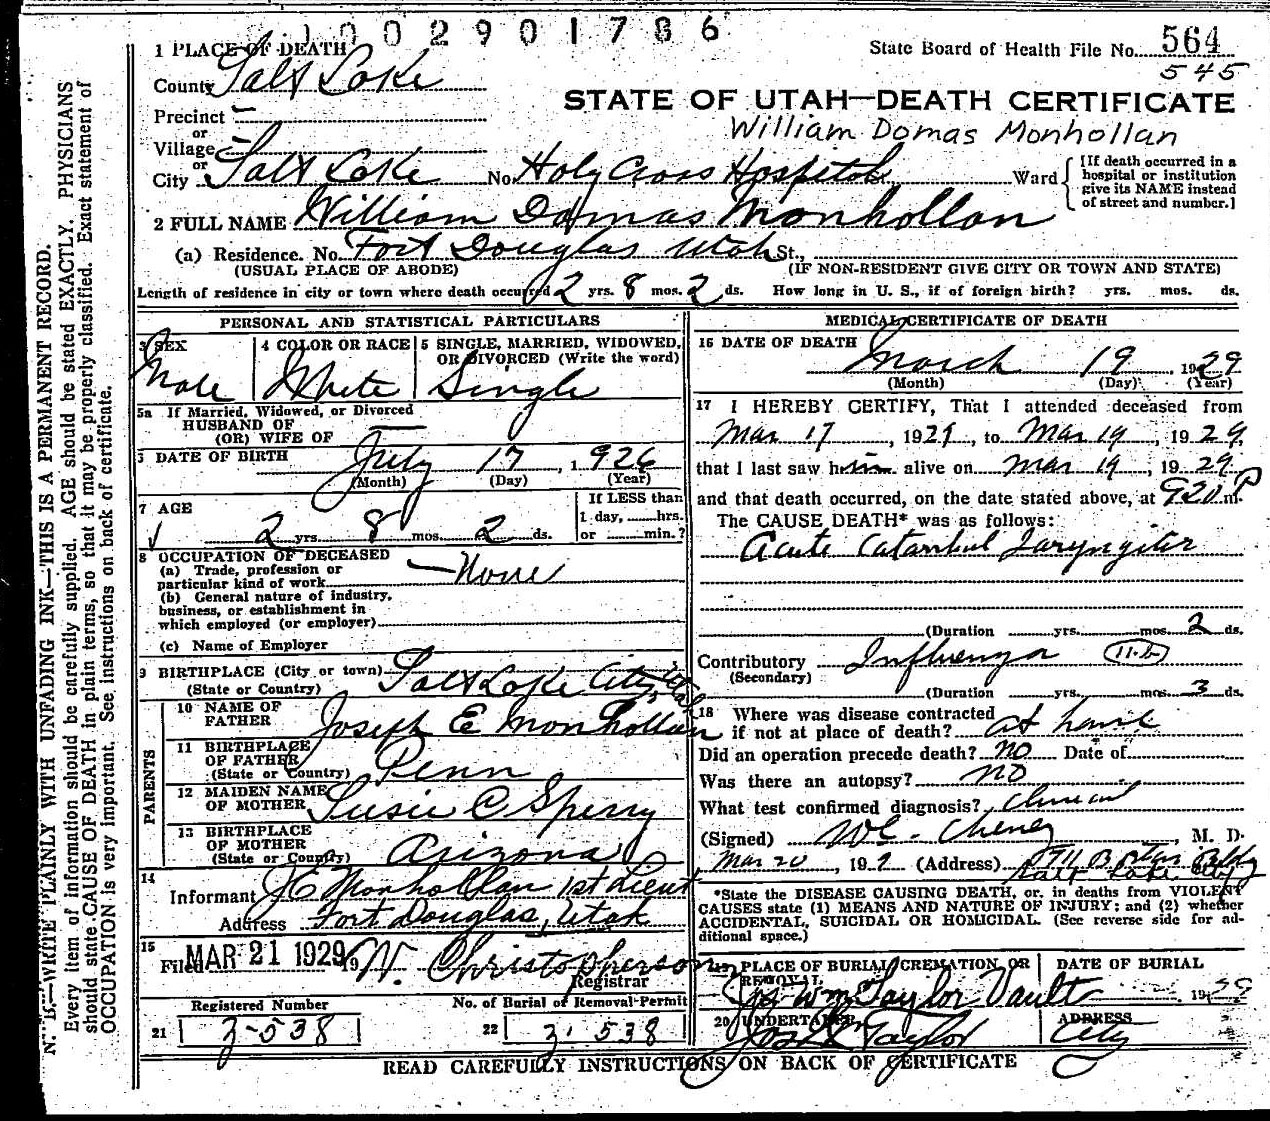 1002901786
1 PLACE OF DEATH
State Board of Health File No. 564
545
County Salt Lake
STATE OF UTAH—DEATH CERTIFICATE
Precinct –
William Domas Monhollan
or
Village –
or
City Salt Lake No. Holy Cross Hospital Ward
[If death occurred in a
hospital or institution
give its NAME instead
of street and number.]
2 FULL NAME William Domas Monhollan
(a) Residence. No. Fort Douglas Utah St.,
(USUAL PLACE OF ABODE) (IF NON-RESIDENT GIVE CITY OR TOWN AND STATE)
Length of residence in city or town where death occurred 2 yrs. 8 mos. 2 ds. How long in U. S., if of foreign birth? yrs. mos. ds.
PERSONAL AND STATISTICAL PARTICULARS
3 SEX
Male
4 COLOR OR RACE
White
5 SINGLE, MARRIED, WIDOWED,
OR DIVORCED (Write the word)
Single
5a If Married, Widowed, or Divorced
HUSBAND OF
(OR) WIFE OF —
DATE OF BIRTH July 17, 1926
(Month) (Day) (Year)
7 AGE
2 yrs. 8 mos. 2 ds.
If LESS than
1 day, hrs.
or min.?
8 OCCUPATION OF DECEASED
(a) Trade, profession or
particular kind of work — None
(b) General nature of industry,
business, or establishment in
which employed (or employer)
(c) Name of Employer
9 BIRTHPLACE (City or town) Salt Lake City, Utah
(State or Country)
PARENTS
10 NAME OF
FATHER Joseph E Monhollan
11 BIRTHPLACE
OF FATHER
(State or Country) Penn
12 MAIDEN NAME
OF MOTHER Susie C Sperry
13 BIRTHPLACE
OF MOTHER
(State or Country) Arizona
14
Informant J E Monhollan 1st Lieut
Address Fort Douglas, Utah
15
Filed MAR 21 1929 19 W. Christopherson
Registrar
Registered Number
21 3-538
No. of Burial or Removal Permit
22 3-538
MEDICAL CERTIFICATE OF DEATH
16 DATE OF DEATH
March 19, 1929
(Month) (Day) (Year)
17 I HEREBY CERTIFY, That I attended deceased from
Mar 17, 1929, to Mar 19, 1929
that I last saw him alive on Mar 19, 1929
and that death occurred, on the date stated above, at 920 P m.
The CAUSE DEATH* was as follows:
Acute Catarrhal Laryngitis
(Duration yrs. mos. 2 ds.
Contributory Influenza 11-b
(Secondary)
(Duration yrs. mos. 3 ds.
18 Where was disease contracted
if not at place of death? at home
Did an operation precede death? no Date of
Was there an autopsy? no
What test confirmed diagnosis? Clinical
(Signed) W C. Cheney, M. D.
Mar 20, 192 9 (Address) Boston Bldg
Salt Lake City
*State the DISEASE CAUSING DEATH, or, in deaths from VIOLENT
CAUSES state (1) MEANS AND NATURE OF INJURY; and (2) whether
ACCIDENTAL, SUICIDAL OR HOMICIDAL. (See reverse side for ad-
ditional space.)
19 PLACE OF BURIAL, CREMATION, OR
REMOVAL
Jos Wm Taylor Vault
DATE OF BURIAL
1929
20 UNDERTAKER
Taylor
ADDRESS
City
READ CAREFULLY INSTRUCTIONS ON BACK OF CERTIFICATE
N. B.—WRITE PLAINLY WITH UNFADING INK—THIS IS A PERMANENT RECORD.
Every item of information should be carefully supplied. AGE should be stated EXACTLY. PHYSICIANS
should state CAUSE OF DEATH in plain terms, so that it may be properly classified. Exact statement of
OCCUPATION is very important. See instructions on back of certificate.